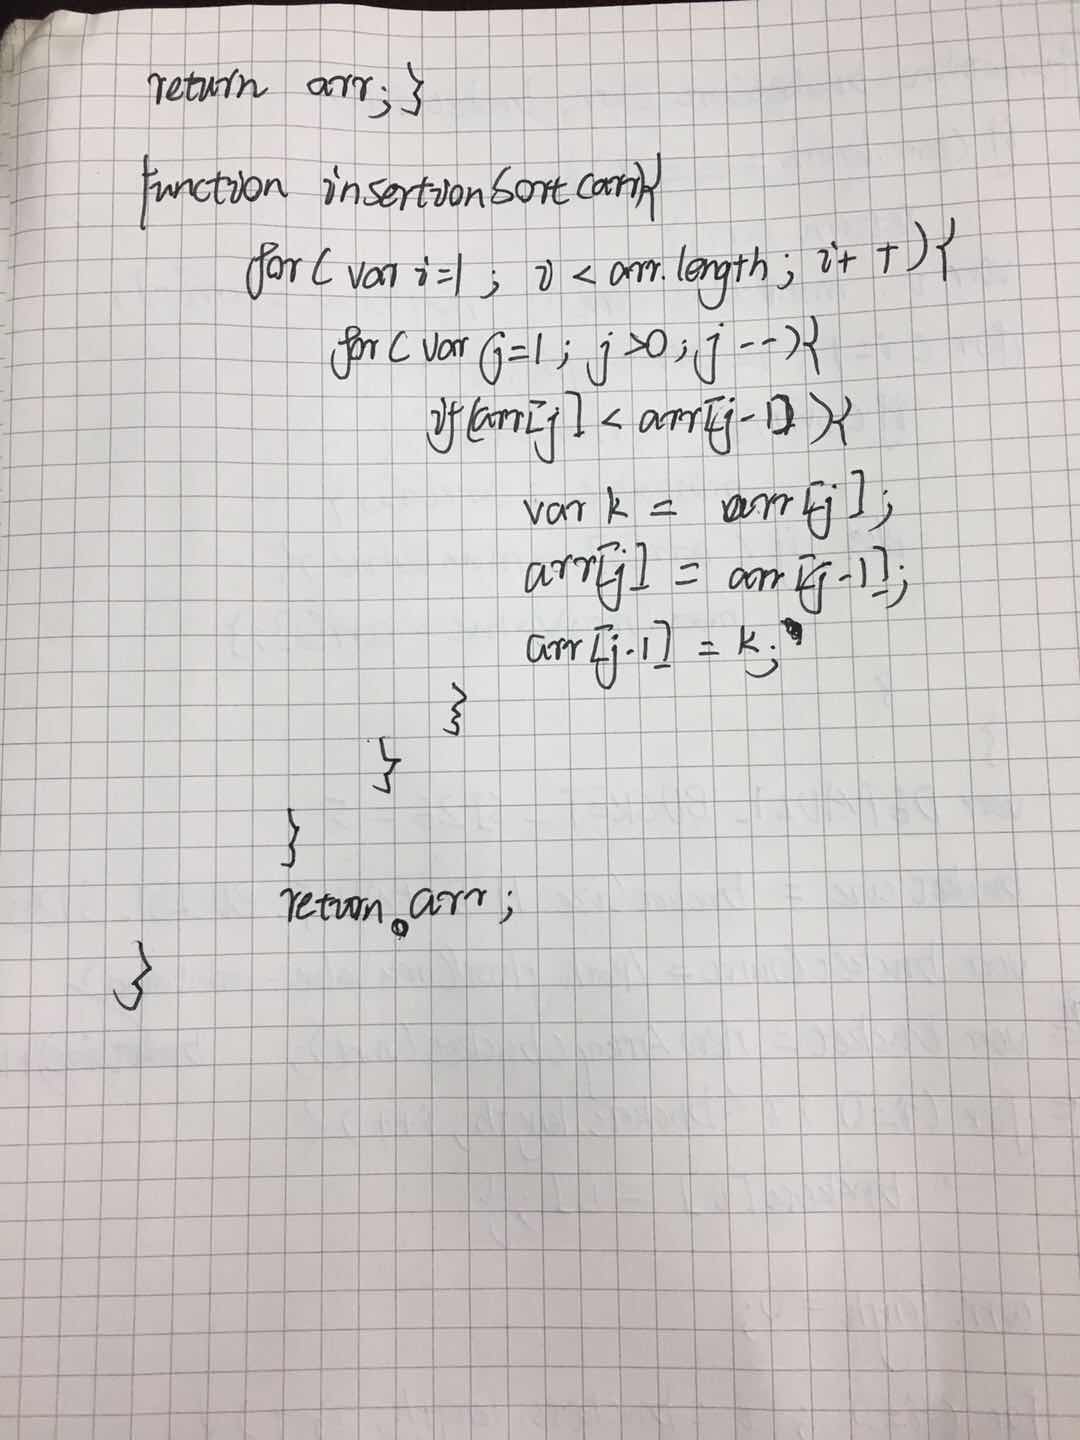 return arr; }
function insertionSort(arr){
for( var i=1 ; i < arr.length ; i++ ){
for( var j=1 ; j>0 ; j-- ){
if(arr[j] < arr[j-1] ){
var k = arr[j];
arr[j] = arr[j-1];
arr[j-1] = k;
}
}
}
return arr;
}